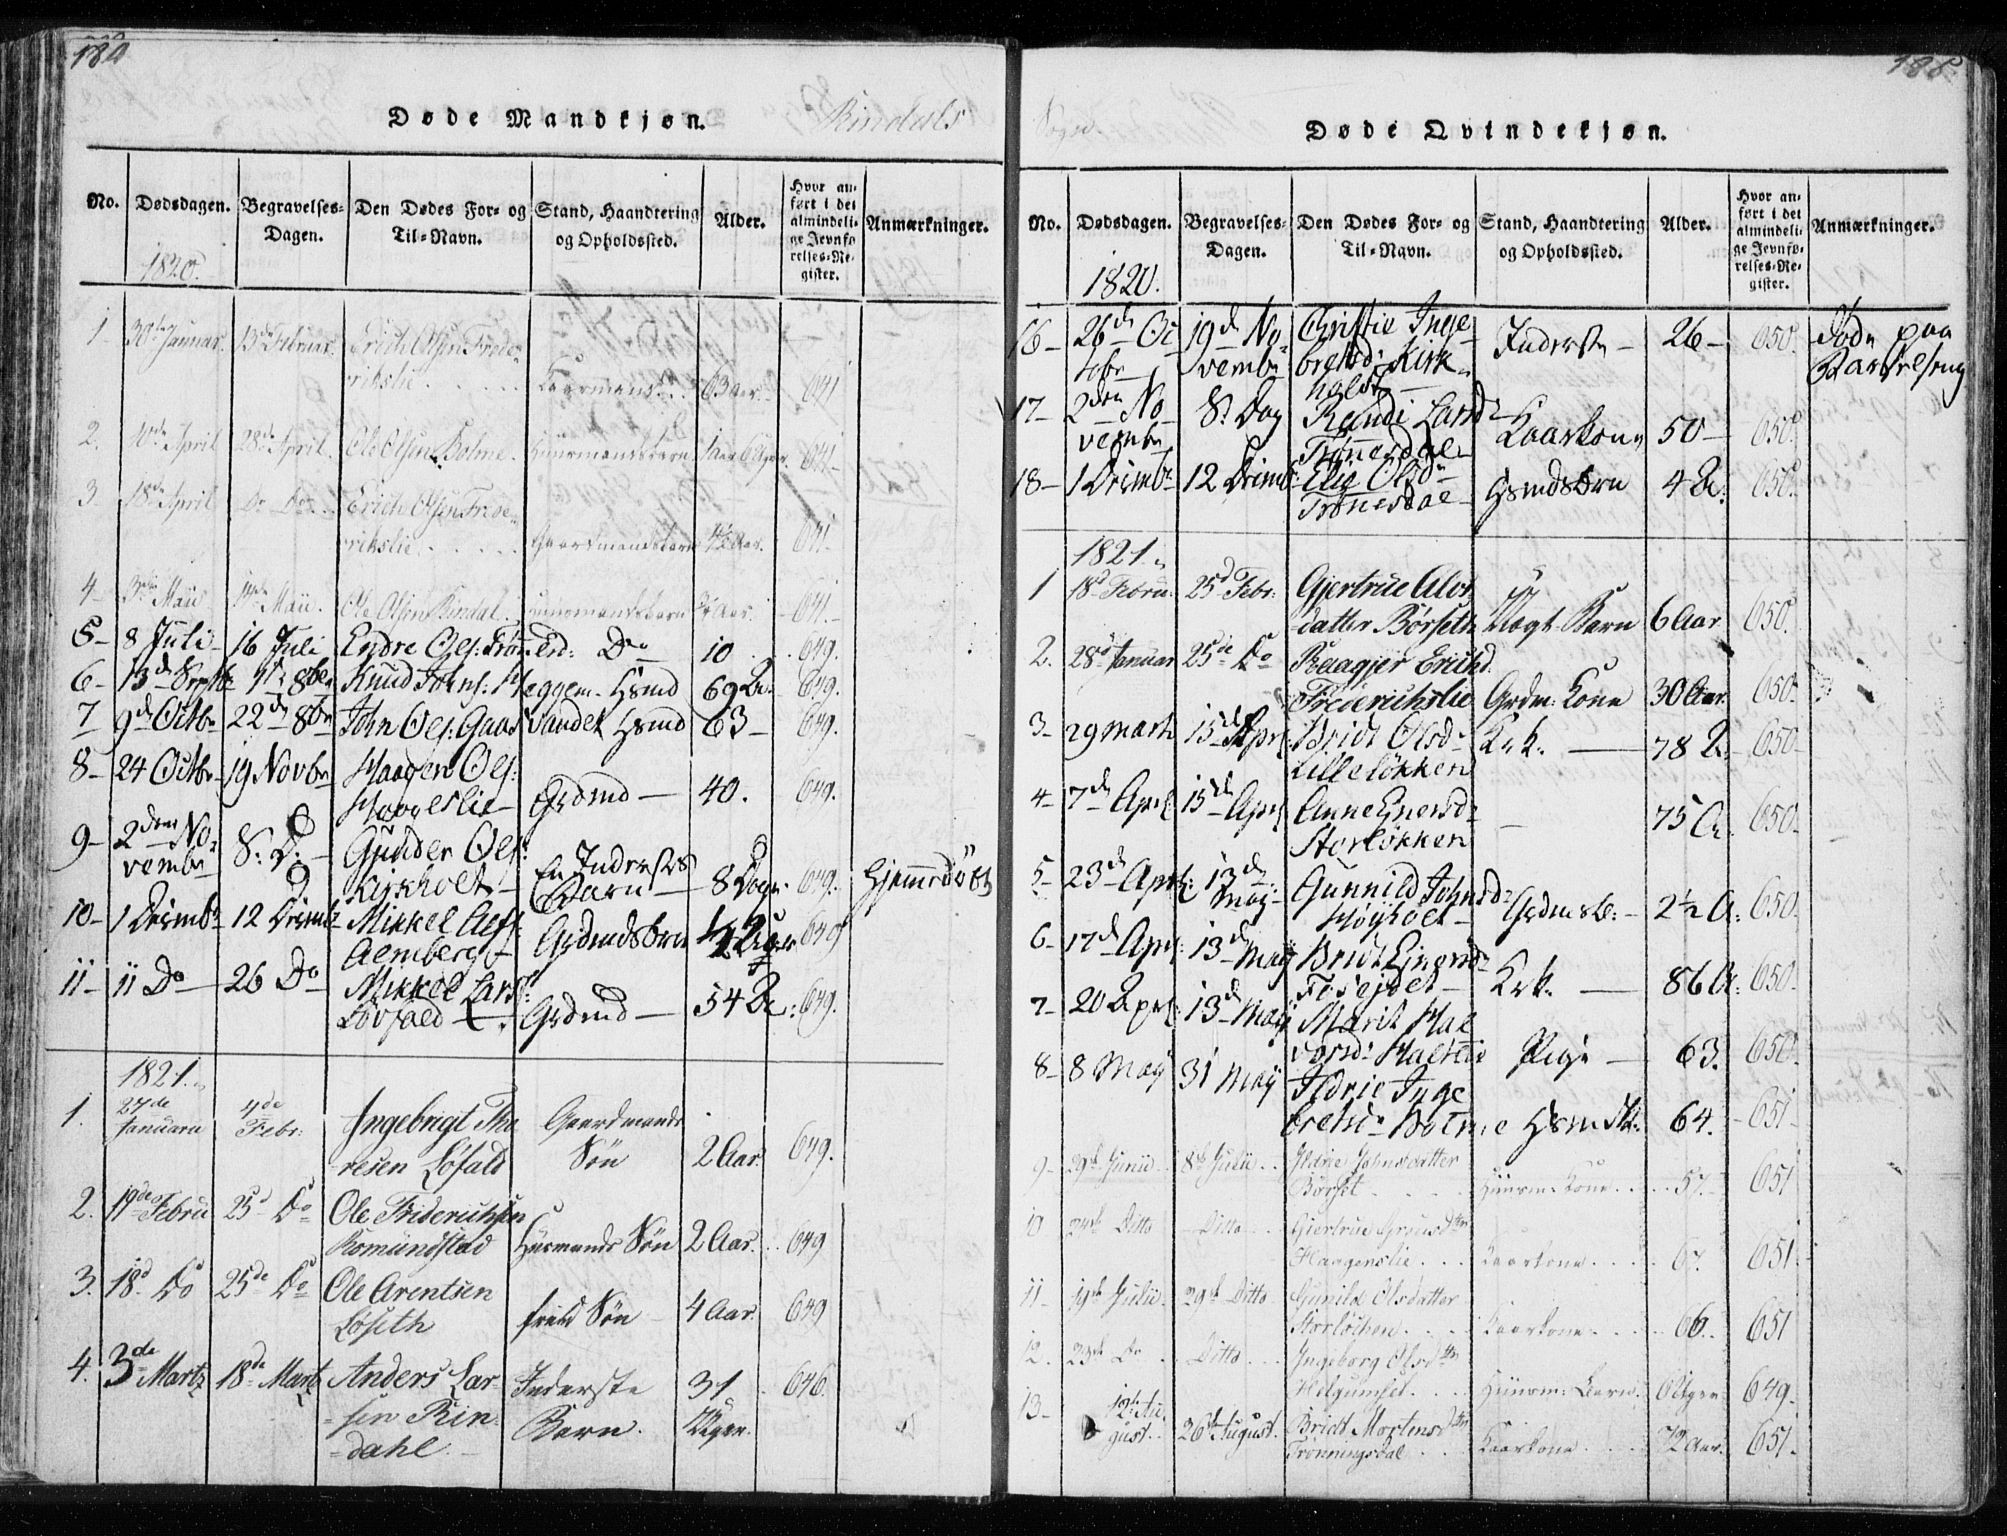 180
Døde Mandkjøn.
Rindals
No.
Dødsdagen.
Begravelses-
Dagen.
Den Dødes For- og
Til-Navn.
Stand, Haandtering
og Opholdssted.
Alder.
Hvor an-
ført i det
almindeli-
ge Jevnfø-
relses-Re-
gister.
Anmærkninger.
1820.
1 30te Januar. 13de Februar. Erich Olsen Frede-
rikslie Kaarmand 63 Aar. 641
2. 10de April 28de April. Ole Olsen Bolme. Huusmandsbarn 1 Aar 641
3 18de April Do Do Erich Olsen Frede-
rikslie Gaardmandsbarn Aar. 641
4 Maii Maii. Ole Olsen Rindal. Huusmandsbarn Aar 641
5 8 Juli 16 Juli Endre Ols: Do 10 649.
6 13d Septbr 8br Knud Johns: Heggem Hsmd 69 A. 649.
7 9d Octbr 22d 8br John Ols: Gaasvandet Hsmd 63 649.
8 24 Octbr 19 Novbr Haagen Ols:
Haageslie Grdmd 40. 649.
9 2den No-
vembr 8: D: Gunder Ols:
Kirkholt En Inderstes
Barn 8 Dage 649. Hjemmedøbt
10 1 Decembr 12 Decembr Mikkel
Grdmdsbrn 649
11 11 Do 26 Do Mikkel Lars:
Løvfald Grdmd 54 A: 649.
1821.
1. 27de
Januarii 4de
Febr: Ingebrigt Tho-
resen Løfald Gaardmands
Søn 2 Aar. 649.
2. 19de Febru 25d Do Ole Friderichsen
Romundstad Huusmands Søn 2 Aar. 649
3. 18d Do 25de Do Ole Arentsen
Løseth Søn 4 Aar. 649
4. 3de Martz 18de Martz Anders Lar-
sen Rin-
dahl Inderste
Barn. 31
Uger. 646.
188.
Sogn.
Døde Qvindekjøn.
No.
Dødsdagen.
Begravelses-
Dagen.
Den Dødes For- og
Til-Navn.
Stand, Haandtering
og Opholdssted.
Alder.
Hvor an-
ført i det
almindeli-
ge Jevnfø-
relses-Re-
gister.
Anmærkninger.
1820.
16 26d Oc-
tobr 19d No-
vembr Christie Inge-
bretsd: Kirk-
holt Inderste 26 650. Døde paa
Barselseng
17 2den No-
vembr 8: Dag Randi Larsd:
Trønesdal Kaarkone 50 650.
18 1 Decembr 12 Decemb: Eli Olsd:
Trønesdal Hsmdsbrn 4 A. 650.
1821.
1 18d Febru. 25d Febr: Gjertrue Alvs
datter Børseth Barn 6 Aar 650.
2. 28d Januar 25de Do Raagjer Erichsd.
Frederichslie Grdm: Kone 30 Aar. 650.
3 29 Marti 15d Apri Bridt Olsd:
Lilleløkken K.k. 78 A. 650
4 7d April 15d April Anne Einersd:
Storløkken 75 A. 650
5 23d April: 13d
May Gunnild Johnsd:
Høyholt Grdmsb: 2½ A. 650.
6 17d April: 13d May Bridt Einersd:
Fosejdet K.k. 86 A. 650.
7 20 Apri: 13d May Marit Hal-
vorsd: Pige 63. 650.
8 8 May 31 May Ildrie Inge-
bretsd: Bolme HsmdK: 64. 651
9 29de Junii 8de Julii Ildrie Johnsdatter
Børset Huusm: Kone 57. 651
10 24de Ditto Ditto Giertrue
Haagenslie Kaarkone 67. 651
11 19de Julii 29de Ditto Gunild Olsdatter
Storløchen Kaarkone 66. 651
12. 23de Do Ditto Ingeborg Olsdtter
Helgumset Huusm: Barn 649.
13 12te Au-
gust. 26de August. Bridt Mortensdtter
Trønningsdal Kaarkone 72 Aar. 651.